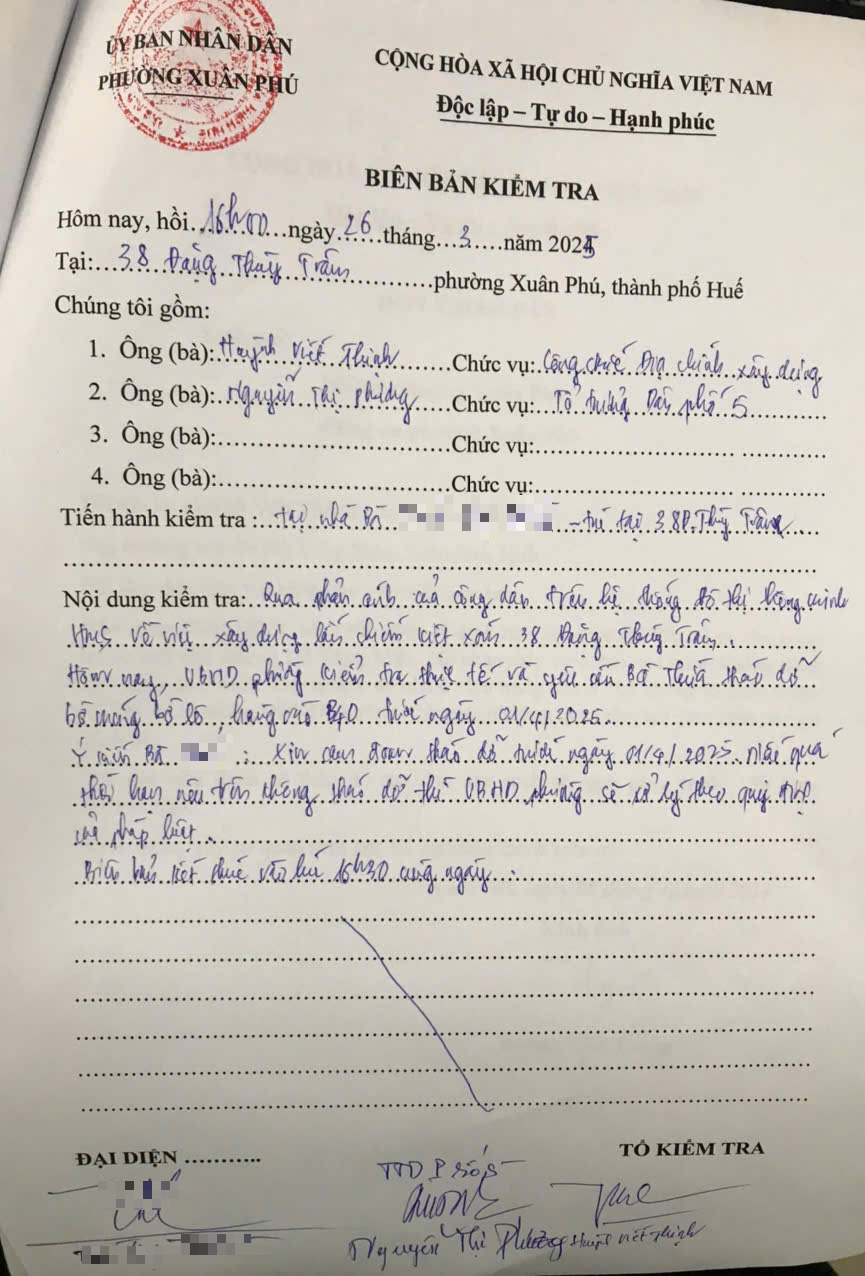 ỦY BAN NHÂN DÂN
PHƯỜNG XUÂN PHÚ
CỘNG HÒA XÃ HỘI CHỦ NGHĨA VIỆT NAM
Độc lập – Tự do – Hạnh phúc
BIÊN BẢN KIỂM TRA
Hôm nay, hồi 16h00 ngày 26 tháng 3 năm 2025
Tại: 38 Đặng Thùy Trâm phường Xuân Phú, thành phố Huế
Chúng tôi gồm:
1. Ông (bà): Huỳnh Viết Thịnh Chức vụ: Công chức Địa chính xây dựng
2. Ông (bà): Nguyễn Thị Phương Chức vụ: Tổ trưởng Dân phố 5
3. Ông (bà): Chức vụ:
4. Ông (bà): Chức vụ:
Tiến hành kiểm tra : tại nhà Bà - trú tại 38 Đ. Thùy Trâm
Nội dung kiểm tra: Qua phản ánh của công dân trên hệ thống đô thị thông minh
HueS về việc xây dựng lấn chiếm kiệt xóm 38 Đặng Thùy Trâm.
Hôm nay, UBND phường kiểm tra thực tế và yêu cầu Bà tháo dỡ
bó móng bờ lô, hàng rào B40 trước ngày 01/4/2025.
Ý kiến Bà : Xin cam đoan tháo dỡ trước ngày 01/4/2025. Nếu quá
thời hạn nêu trên không tháo dỡ thì UBND phường sẽ xử lý theo quy định
của pháp luật.
Biên bản kết thúc vào lúc 16h30 cùng ngày.
ĐẠI DIỆN
TỔ KIỂM TRA
TTDP số 5
Nguyễn Thị Phương
Huỳnh Viết Thịnh